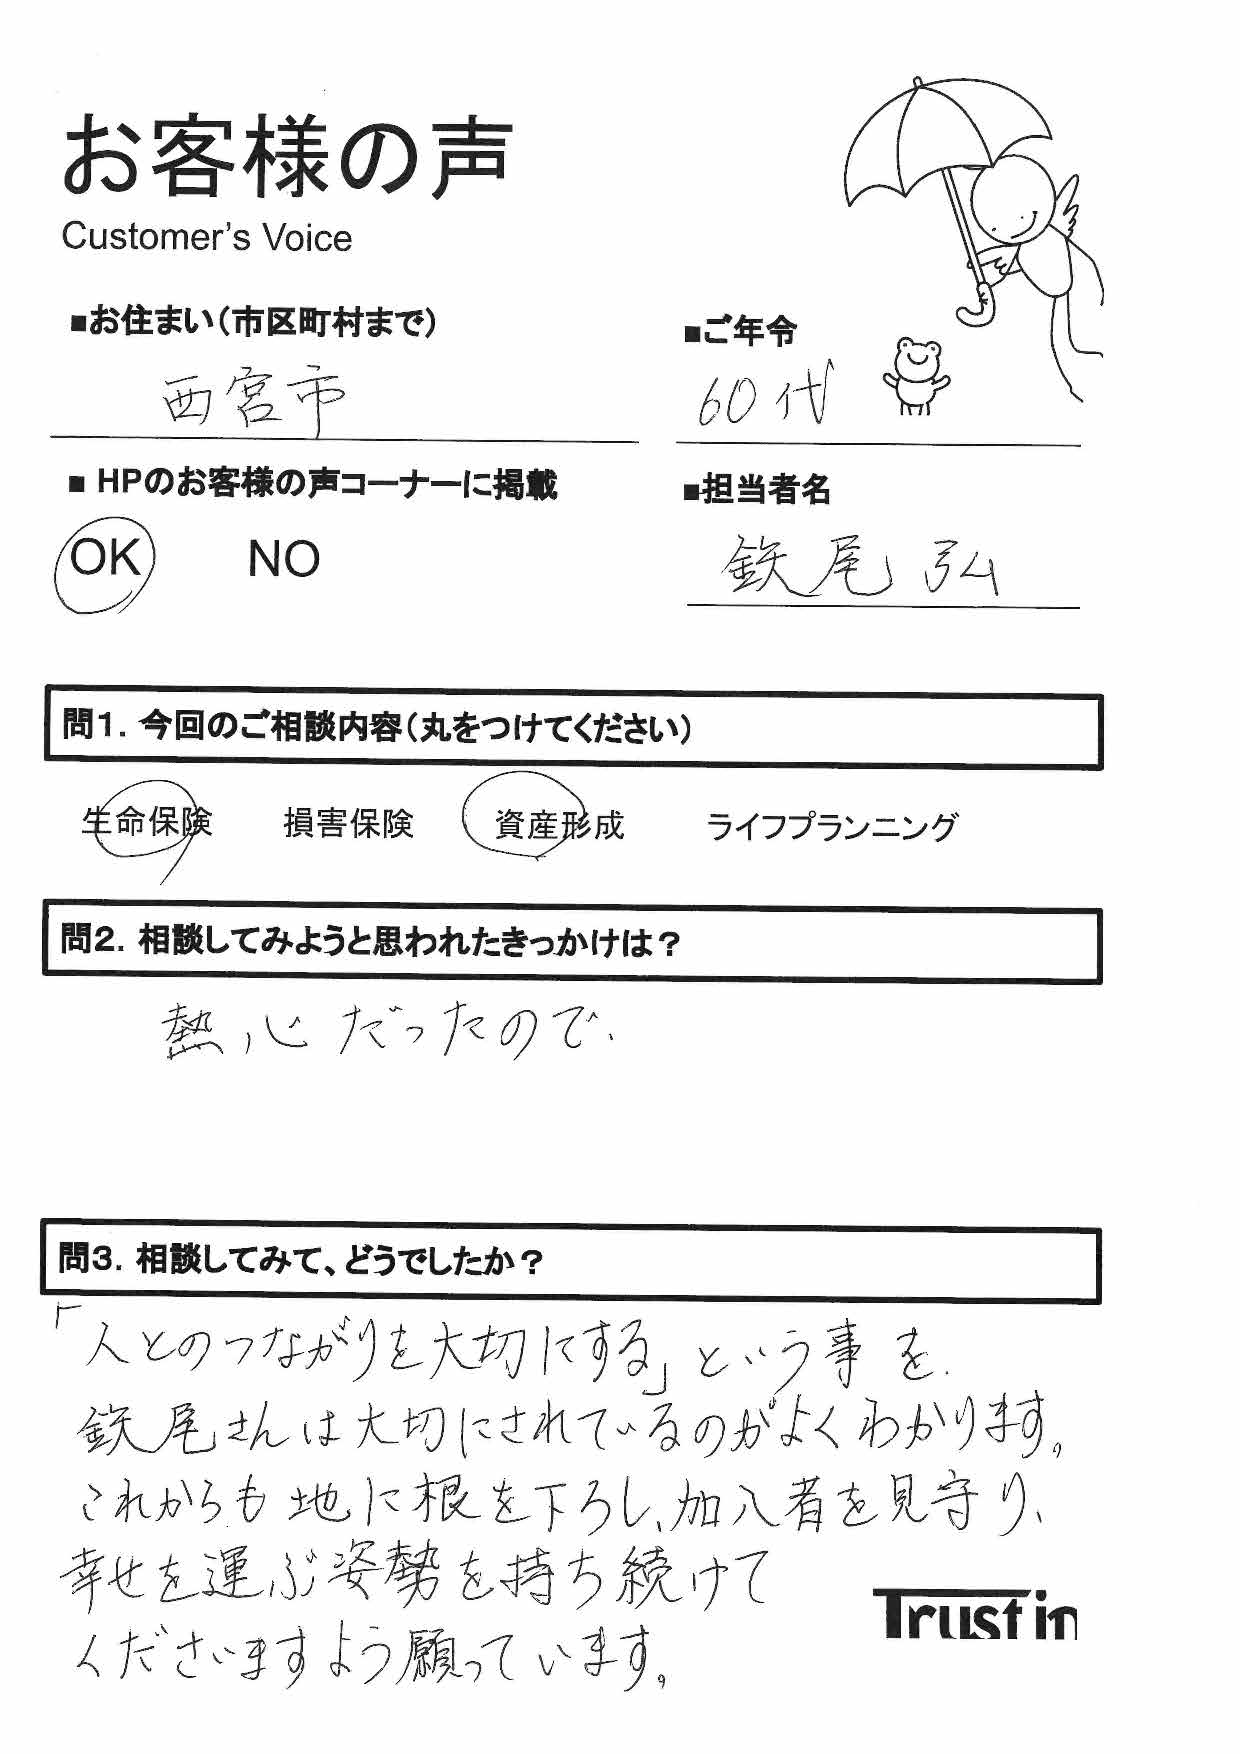 お客様の声
Customer's Voice
■お住まい(市区町村まで)
西宮市
■ご年令
60代
■ HPのお客様の声コーナーに掲載
OK NO
■担当者名
鉃尾 弘
問1. 今回のご相談内容(丸をつけてください)
生命保険 損害保険 資産形成 ライフプランニング
問2. 相談してみようと思われたきっかけは?
熱心だったので、
問3. 相談してみて、どうでしたか?
「人とのつながりを大切にする」という事を
鉃尾さんは大切にされているのがよくわかります。
これからも地に根を下ろし、加入者を見守り、
幸せを運ぶ姿勢を持ち続けて
くださいますよう願っています。
Trust in